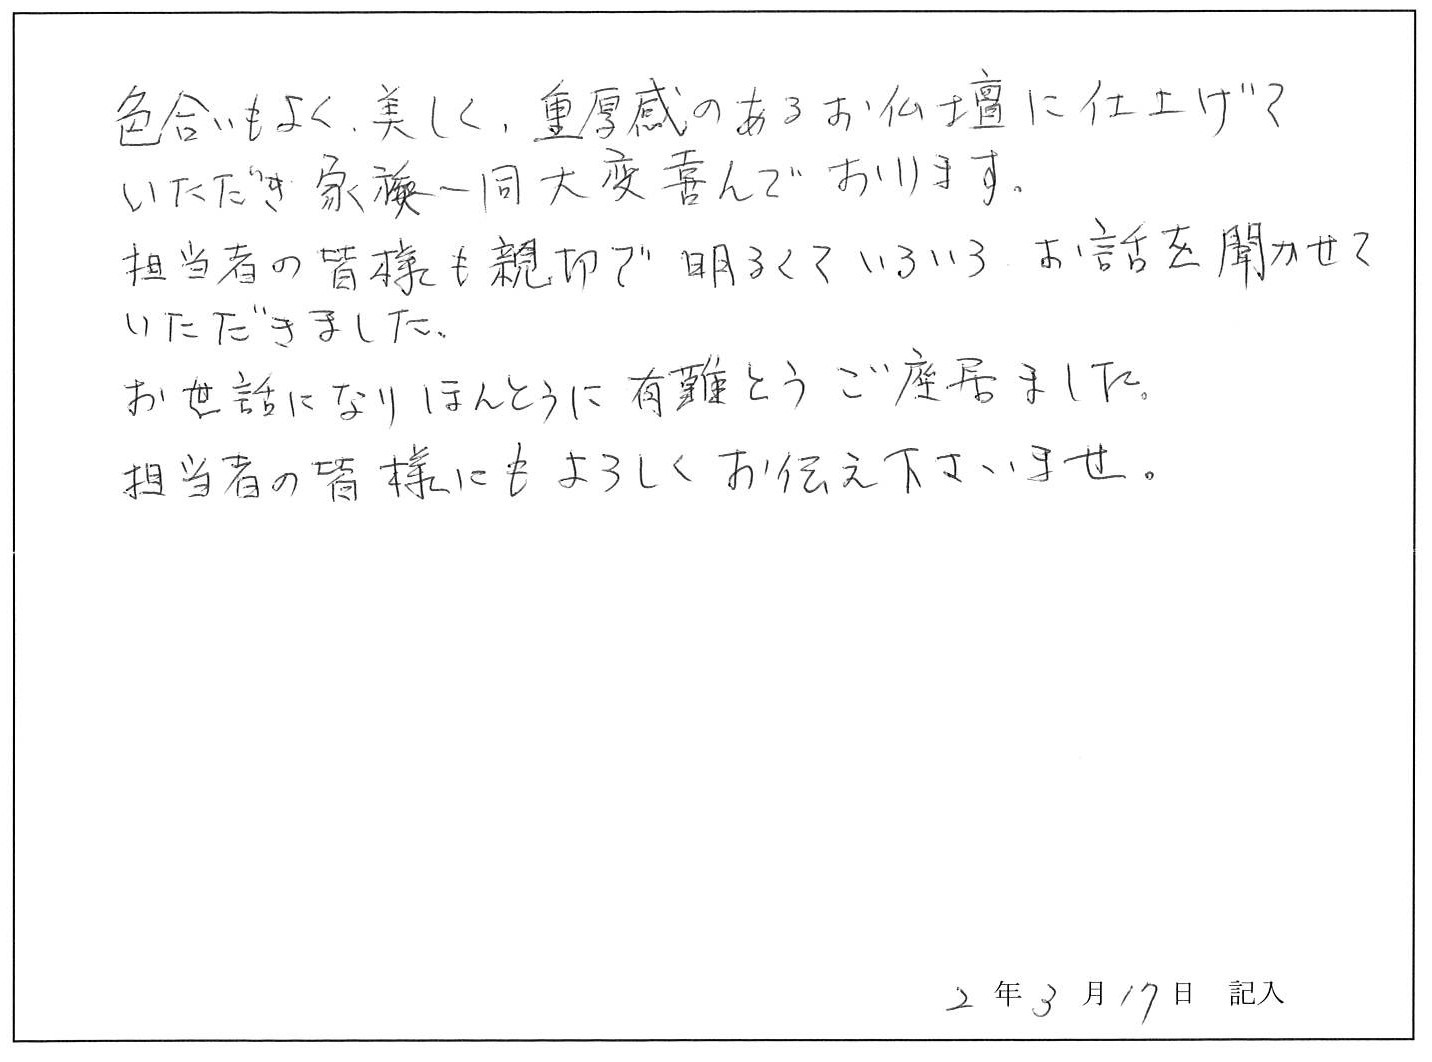 色合いもよく、美しく、重厚感のあるお仏壇に仕上げて
いただき家族一同大変喜んでおります。
担当者の皆様も親切で明るくていろいろお話を聞かせて
いただきました。
お世話になりほんとうに有難とうご座居ました。
担当者の皆様にもよろしくお伝え下さいませ。
2年3月17日 記入